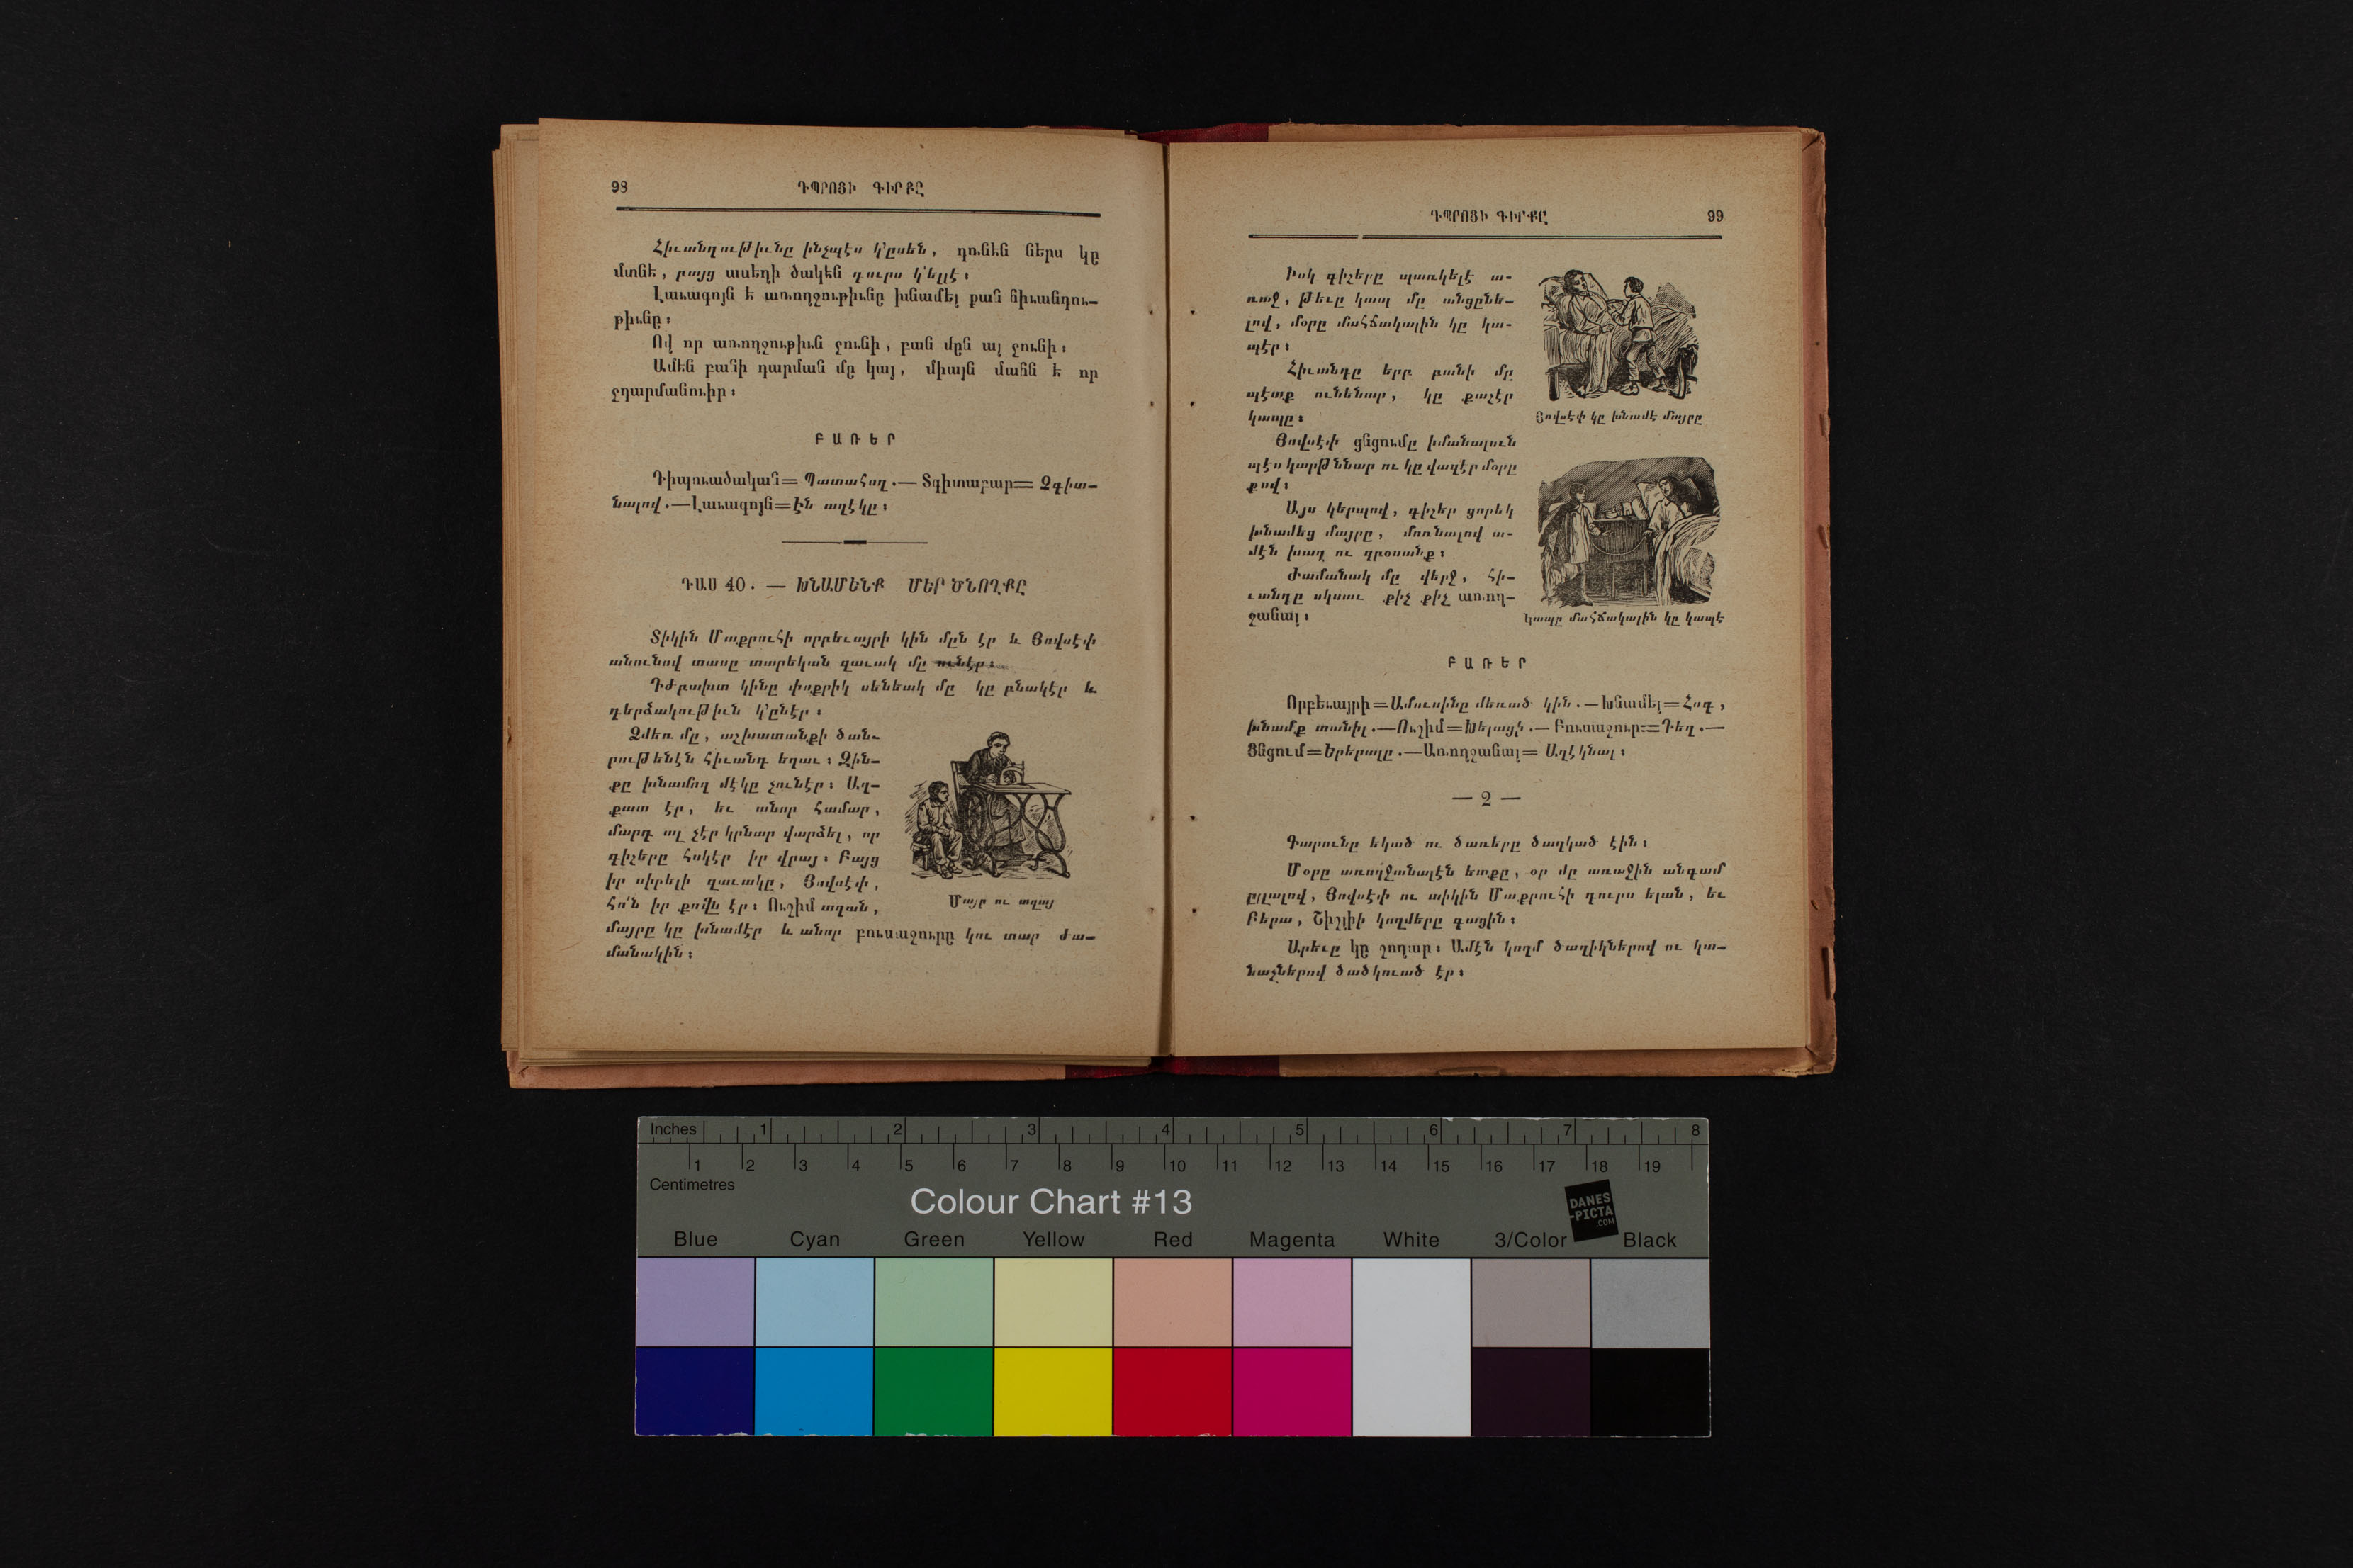 98
ԴՊՐՈՑԻ ԳԻՐՔԸ
Հիւանդութիւնը ինչպէս կ'ըսեն, դռնէն ներս կը
մտնէ, բայց ասեղի ծակէն դուրս կ'ելլէ։
Լաւագոյն է առողջութիւնը խնամել քան հիւանդու-
թիւնը։
Ով որ առողջութիւն չունի, բան մըն ալ չունի։
Ամէն բանի դարման մը կայ, միայն մահն է որ
չդարմանուիր։
ԲԱՌԵՐ
Դիպուածական=Պատահող.—Տգիտաբար=Չգիտ-
նալով.—Լաւագոյն=Էն աղէկը։
ԴԱՍ 40. — ԽՆԱՄԵՆՔ ՄԵՐ ԾՆՈՂՔԸ
Տիկին Մաքրուհի որբեւայրի կին մըն էր և Յովսէփ
անունով տասը տարեկան զաւակ մը ունէր։
Դժբախտ կինը փոքրիկ սենեակ մը կը բնակէր և
դերձակութիւն կ'ընէր։
Ձմեռ մը, աշխատանքի ծան-
րութենէն հիւանդ եղաւ։ Զին-
քը խնամող մէկը չունէր։ Աղ-
քատ էր, եւ անոր համար,
մարդ ալ չէր կրնար վարձել, որ
գիշերը հսկէր իր վրայ։ Բայց
իր սիրելի զաւակը, Յովսէփ,
հո՛ն իր քովն էր։ Ուշիմ տղան,
մայրը կը խնամէր և անոր բուսաջուրը կու տար ժա-
մանակին։
Մայր ու տղայ
ԴՊՐՈՑԻ ԳԻՐՔԸ
99
Իսկ գիշերը պառկելէ ա-
ռաջ, թեւը կապ մը անցընե-
լով, մօրը մահճակալին կը կա-
պէր։
Հիւանդը երբ բանի մը
պէտք ունենար, կը քաշէր
կապը։
Յովսէփ ցնցումը իմանալուն
պէս կարթննար ու կը վազէր մօրը
քով։
Այս կերպով, գիշեր ցորեկ
խնամեց մայրը, մոռնալով ա-
մէն խաղ ու զբօսանք։
Ժամանակ մը վերջ, հի-
ւանդը սկսաւ քիչ քիչ առող-
ջանալ։
Յովսէփ կը խնամէ մայրը
Կապը մահճակալին կը կապէ
ԲԱՌԵՐ
Որբեւայրի=Ամուսինը մեռած կին.—Խնամել=Հոգ,
խնամք տանիլ.—Ուշիմ=Խելացի.—Բուսաջուր=Դեղ.—
Ցնցում=Երերալը.—Առողջանալ=Աղէկնալ։
— 2 —
Գարունը եկած ու ծառերը ծաղկած էին։
Մօրը առողջանալէն ետքը, օր մը առաջին անգամ
ըլլալով, Յովսէփ ու տիկին Մաքրուհի դուրս ելան, եւ
Բերա, Շիշլիի կողմերը գացին։
Արեւը կը շողար։ Ամէն կողմ ծաղիկներով ու կա-
նաչներով ծածկուած էր։
Inches 1 2 3 4 5 6 7 8
1 2 3 4 5 6 7 8 9 10 11 12 13 14 15 16 17 18 19
Centimetres
Colour Chart #13
DANES
-PICTA
.COM
Blue Cyan Green Yellow Red Magenta White 3/Color Black